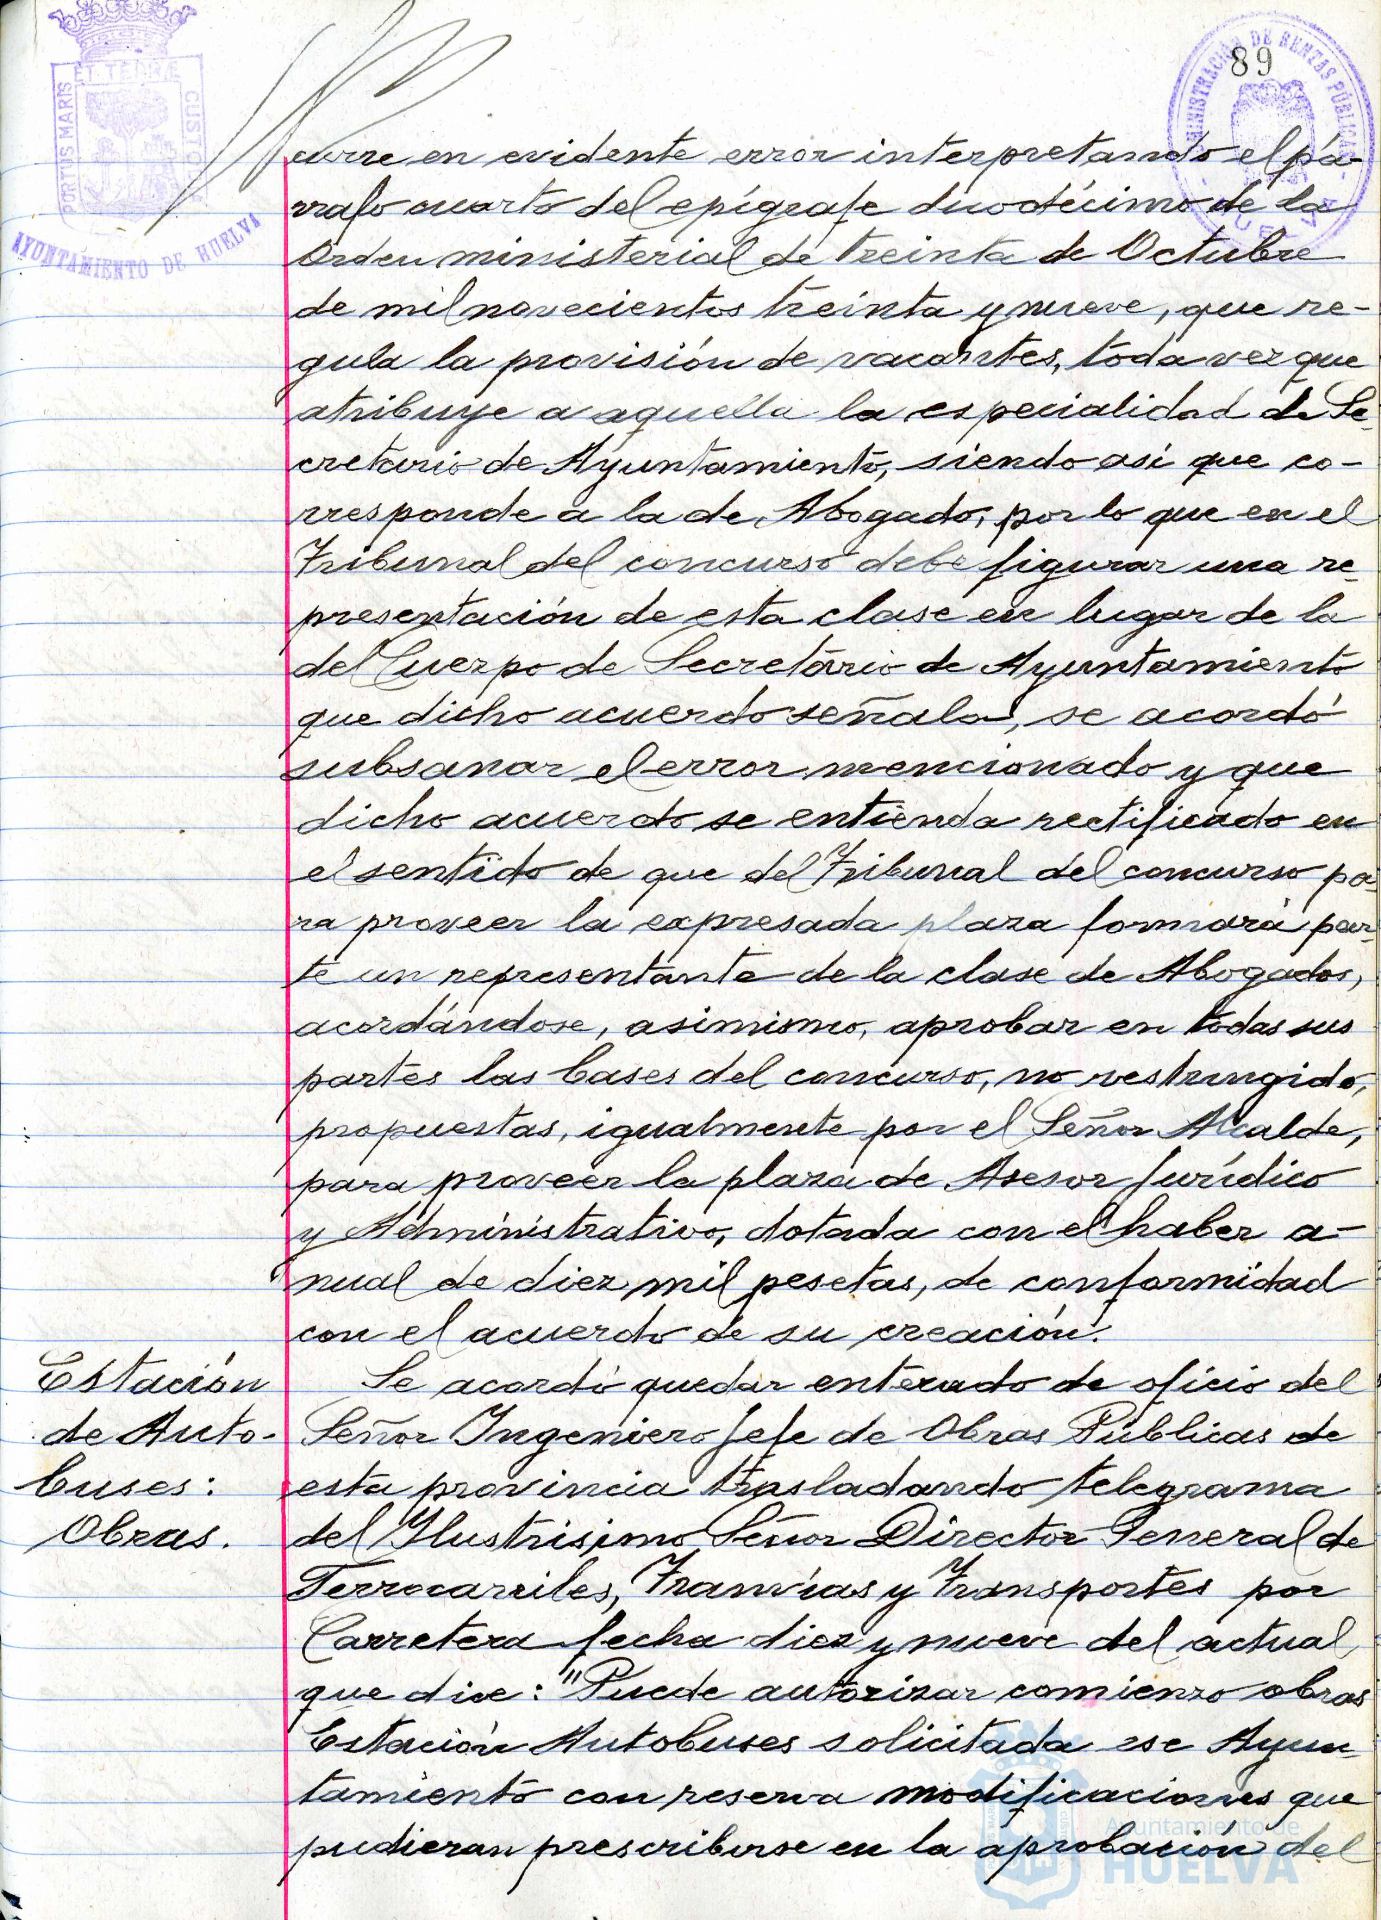 89
PORTUS MARIS
ET TERRÆ
CUSTO
AYUNTAMIENTO DE HUELVA
ADMINISTRACIÓN DE RENTAS PÚBLICAS
curre en evidente error interpretando el pá-
rrafo cuarto del epígrafe duodécimo de la
Orden ministerial de treinta de Octubre
de mil novecientos treinta y nueve, que re-
gula la provisión de vacantes, toda vez que
atribuye a aquella la especialidad de Se-
cretario de Ayuntamiento, siendo así que co-
rresponde a la de Abogado, por lo que en el
Tribunal del concurso debe figurar una re-
presentación de esta clase en lugar de la
del Cuerpo de Secretario de Ayuntamiento
que dicho acuerdo señala, se acordó
subsanar el error mencionado y que
dicho acuerdo se entienda rectificado en
el sentido de que del Tribunal del concurso pa-
ra proveer la expresada plaza formará par-
te un representante de la clase de Abogados,
acordándose, asimismo, aprobar en todas sus
partes las bases del concurso, no restringido,
propuestas, igualmente por el Señor Alcalde,
para proveer la plaza de Asesor Jurídico
y Administrativo, dotada con el haber a-
nual de diez mil pesetas, de conformidad
con el acuerdo de su creación.
Estación
de Auto-
buses:
Obras.
Se acordó quedar enterado de oficio del
Señor Ingeniero Jefe de Obras Públicas de
esta provincia trasladando telegrama
del Ilustrisimo Señor Director General de
Ferrocarriles, Tranvías y Transportes por
Carretera fecha diez y nueve del actual
que dice: "Puede autorizar comienzo obras
Estación Autobuses solicitada ese Ayun-
tamiento con reserva modificaciones que
pudieran prescribirse en la aprobación del
Ayuntamiento de
HUELVA